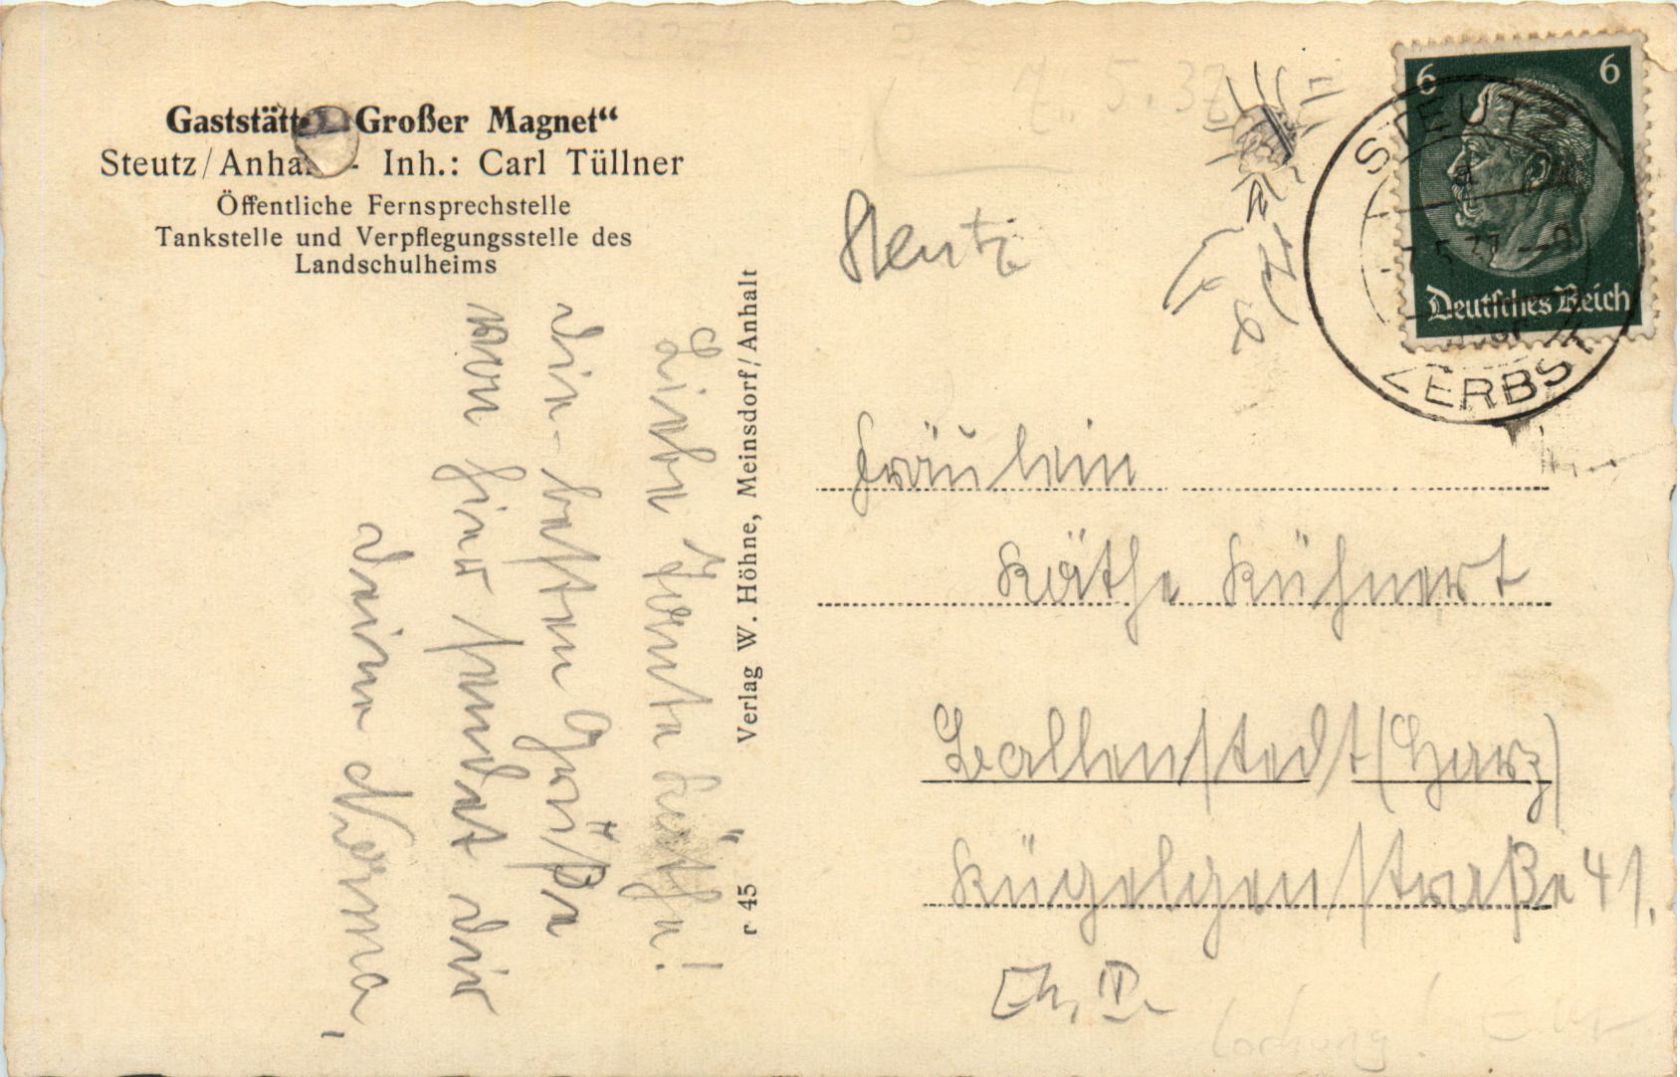 Gaststätte „Großer Magnet“
Steutz/Anhalt - Inh.: Carl Tüllner
Öffentliche Fernsprechstelle
Tankstelle und Verpflegungsstelle des
Landschulheims
Liebe Tante Käthe!
die besten Grüße
von hier sendet dir
deine Norma
Verlag W. Höhne, Meinsdorf/Anhalt
r 45
7.5.37
Steutz
6 6
Deutsches Reich
STEUTZ
7.5.37
ZERBST
Fräulein
Käthe Kühnert
Ballenstedt (Harz)
Kügelgenstraße 41.